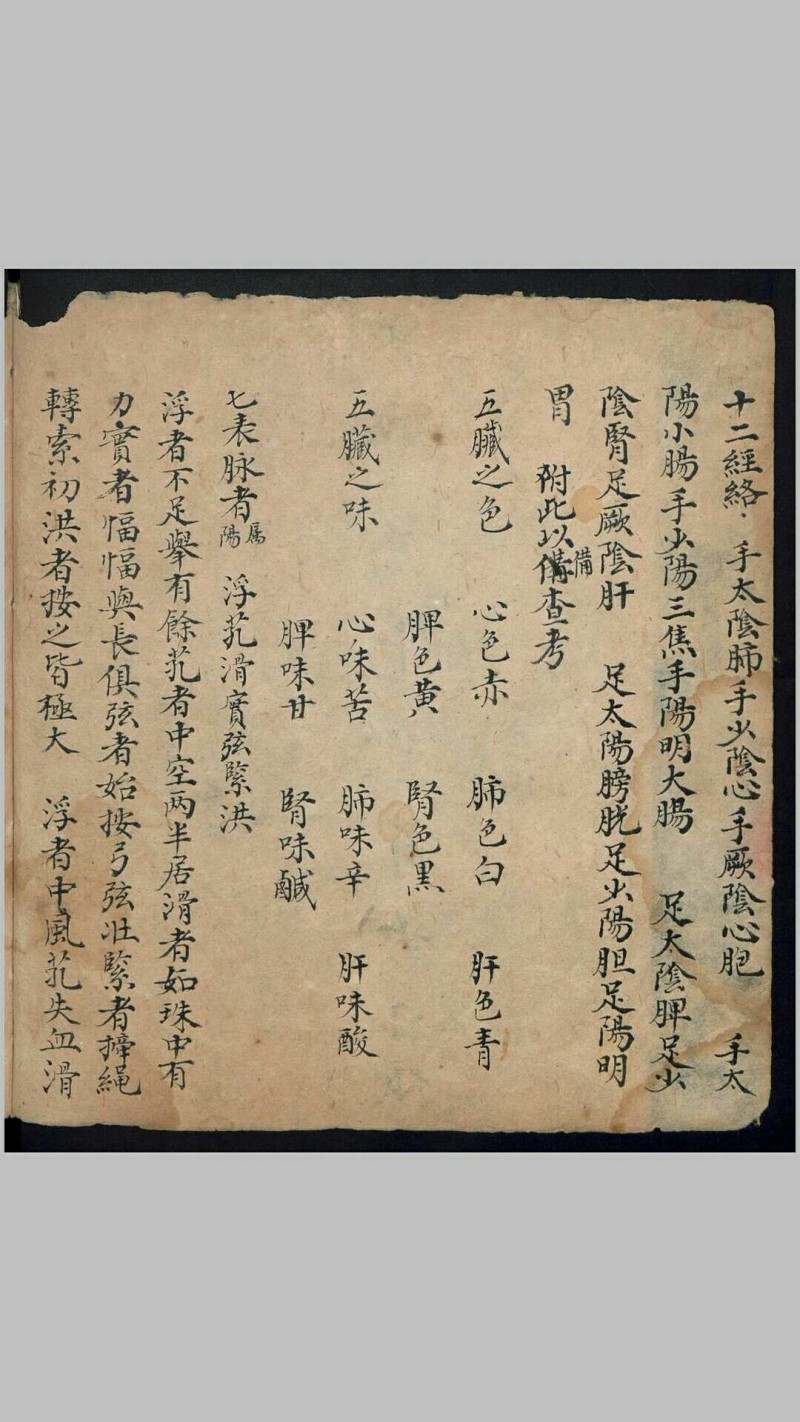 十二經絡．手太陰肺手少陰心手厥陰心胞　手太
陽小腸手少陽三焦手陽明大腸　足太陰脾足少
陰腎足厥陰肝　足太陽膀胱足少陽胆足陽明
胃　附此以備查考
備
五臟之色　心色赤　肺色白　肝色青
脾色黃　腎色黑
五臟之味　心味苦　肺味辛　肝味酸
脾味甘　腎味鹹
七表脉者屬陽　浮芤滑實弦緊洪
浮者不足舉有餘芤者中空两半居滑者如珠中有
力實者愊愊與長俱弦者始按弓弦壯緊者㨃繩
轉索初洪者按之皆極大　浮者中風芤失血滑